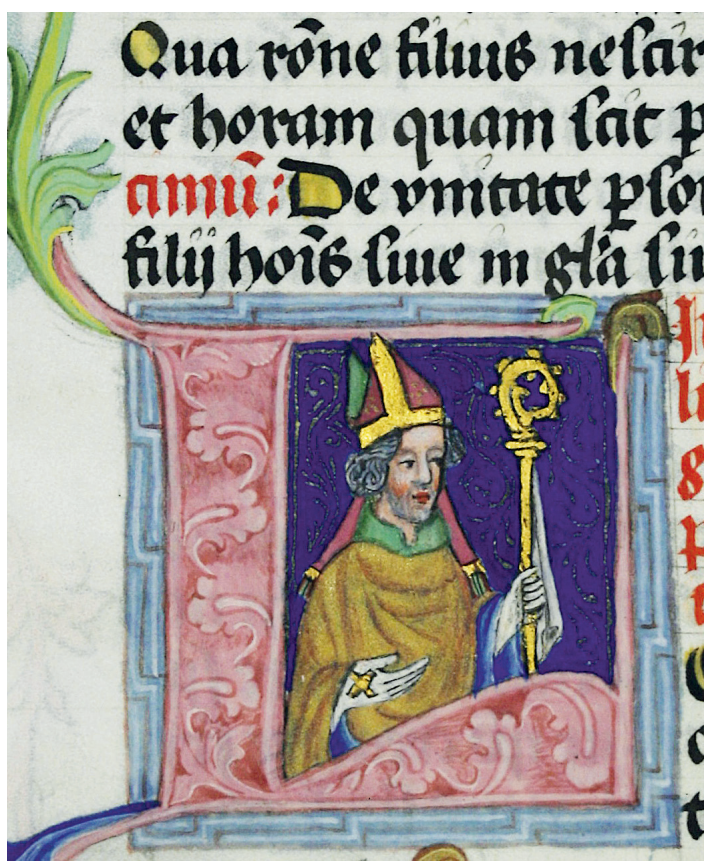 Qua rōne filius nescir
et horam quam scit p
cimū: De vnitate ꝑso
filij hoīs siue in gl̄a su
L
li
g
p